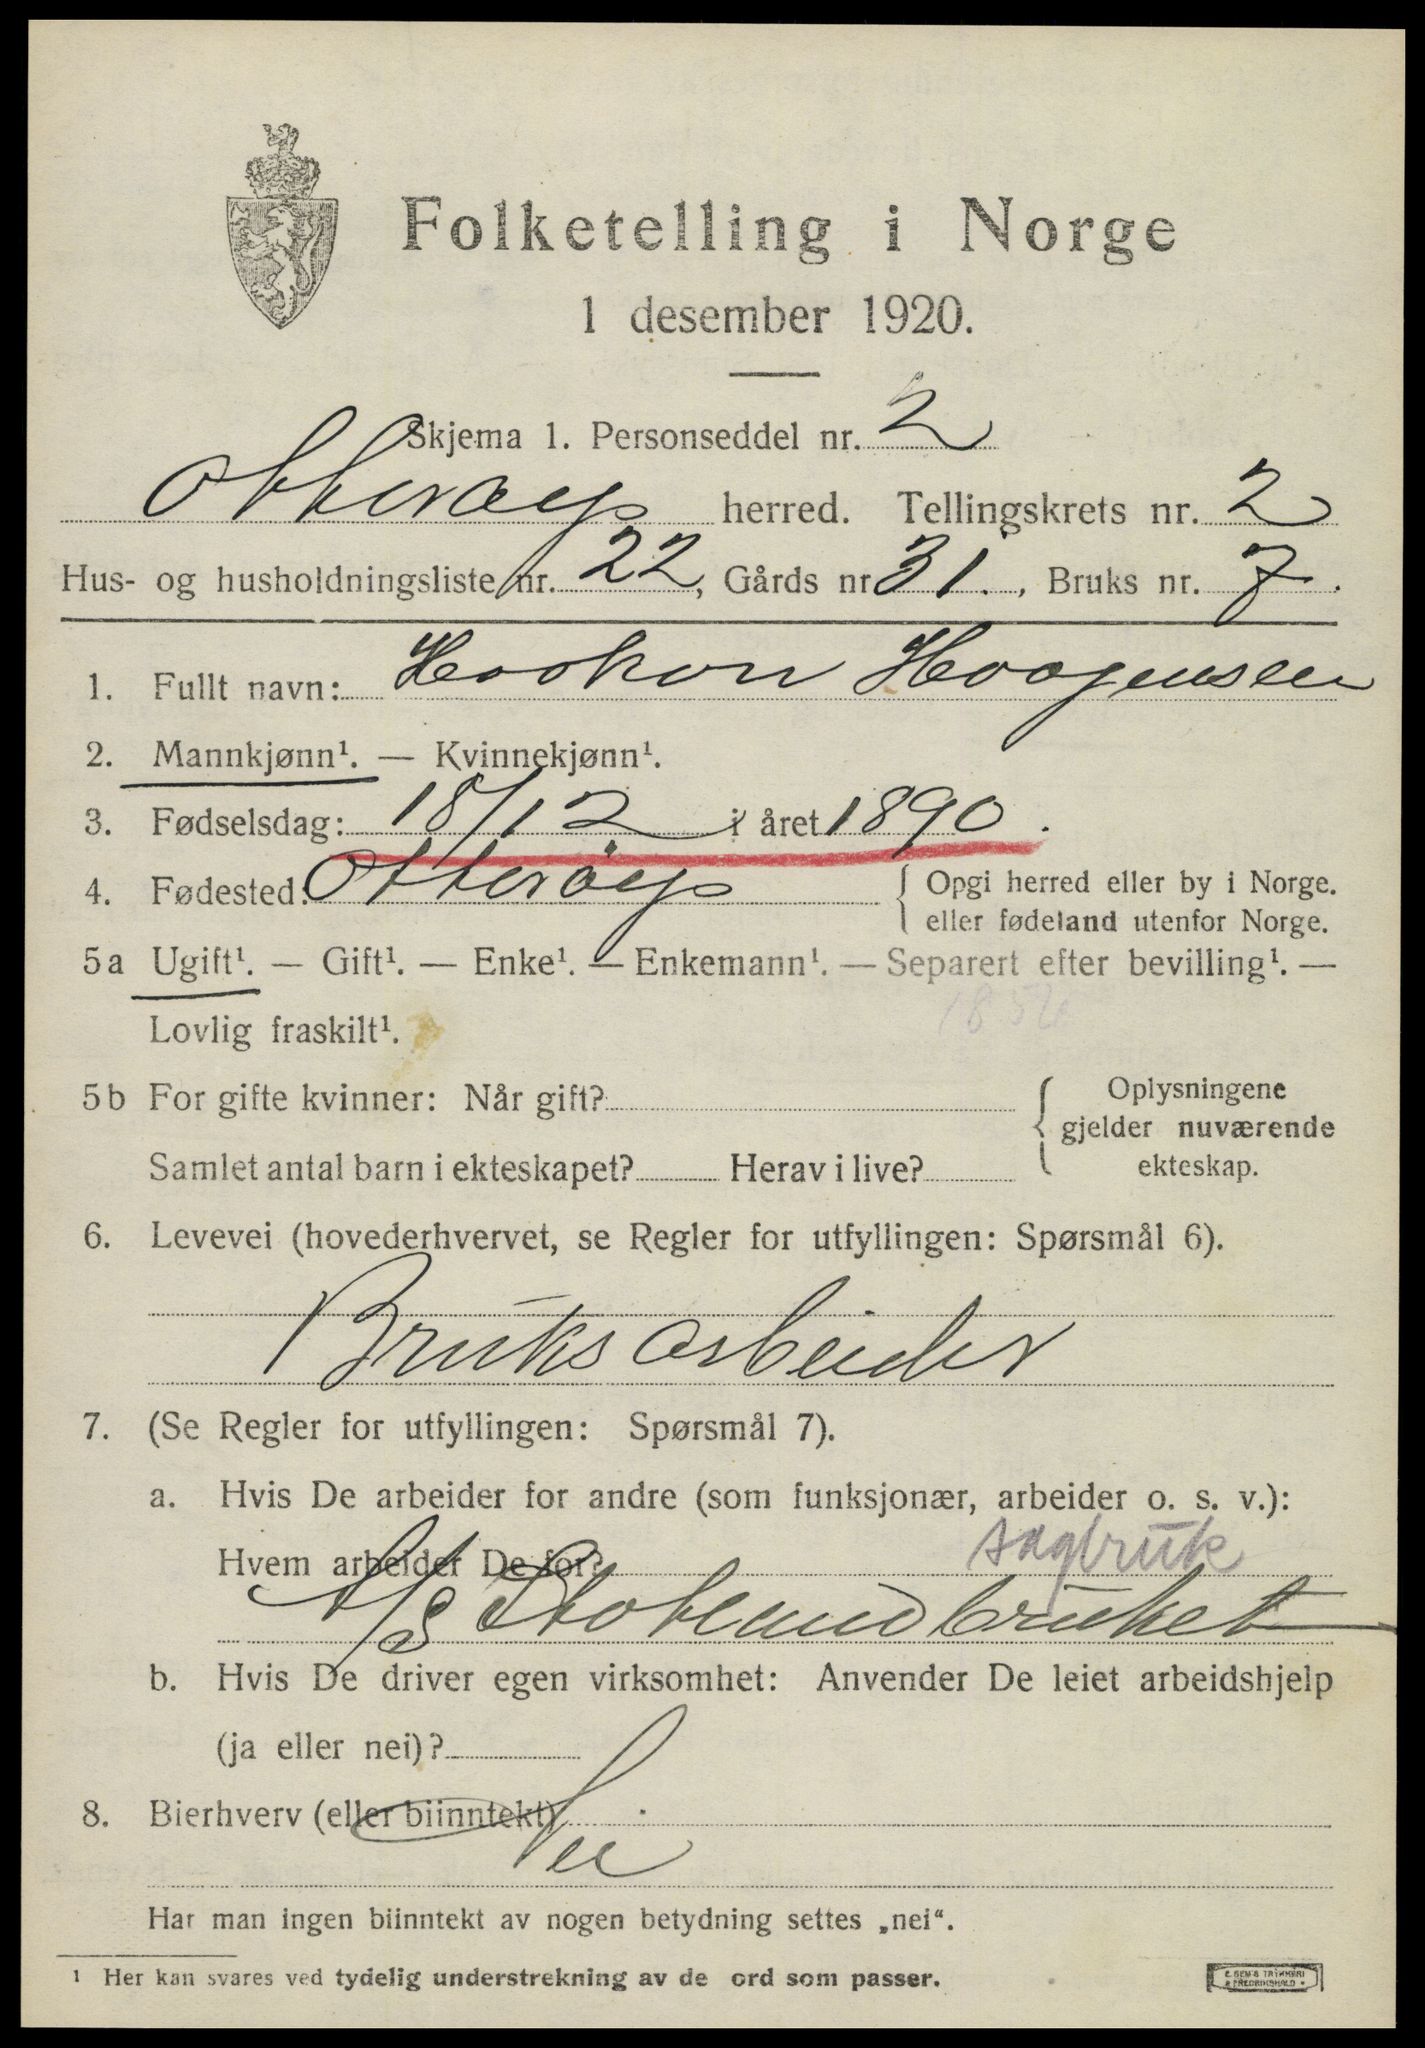 Folketelling i Norge
1 desember 1920.
Skjema 1. Personseddel nr. 2
Otterøy herred. Tellingskrets nr. 2
Hus- og husholdningsliste nr. 22, Gårds nr 31., Bruks nr. 7.
1. Fullt navn: Haakon Haagensen
2. Mannkjønn¹. — Kvinnekjønn¹.
3. Fødselsdag: 18/12 i året 1890.
4. Fødested: Otterøy { Opgi herred eller by i Norge.
eller fødeland utenfor Norge.
5a Ugift¹. — Gift¹. — Enke¹. — Enkemann¹. — Separert efter bevilling¹. —
Lovlig fraskilt¹.
5b For gifte kvinner: Når gift? { Oplysningene
gjelder nuværende
Samlet antal barn i ekteskapet? Herav i live? ekteskap.
6. Levevei (hovederhvervet, se Regler for utfyllingen: Spørsmål 6).
Bruksarbeider
7. (Se Regler for utfyllingen: Spørsmål 7).
a. Hvis De arbeider for andre (som funksjonær, arbeider o. s. v.):
Hvem arbeider De for? sagbruk
A/S
b. Hvis De driver egen virksomhet: Anvender De leiet arbeidshjelp
(ja eller nei)?
8. Bierhverv (eller biinntekt)
Nei
Har man ingen biinntekt av nogen betydning settes „nei“.
1 Her kan svares ved tydelig understrekning av de ord som passer.
E. SEM'S TRYKKERI
FREDRIKSHALD